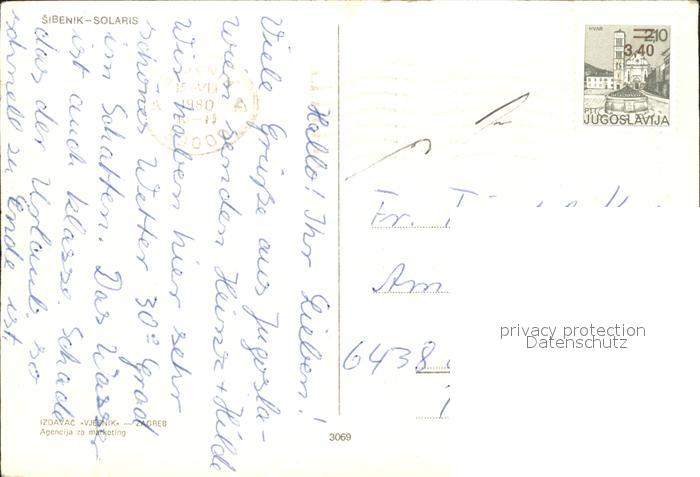 ŠIBENIK-SOLARIS
Hallo! Ihr Lieben!
Viele Grüße aus Jugosla-
wien senden Heinz + Hilde
Wir haben hier sehr
schönes Wetter 30° Grad
im Schatten. Das Wasser
ist auch klasse. Schade
das der Urlaub so
schnell zu Ende ist.
IZDAVAČ «VJESNIK» — ZAGREB
Agencija za marketing
3069
1980
HVAR
2,10
3,40
PTT
JUGOSLAVIJA
Fr.
Am
6438
privacy protection
Datenschutz